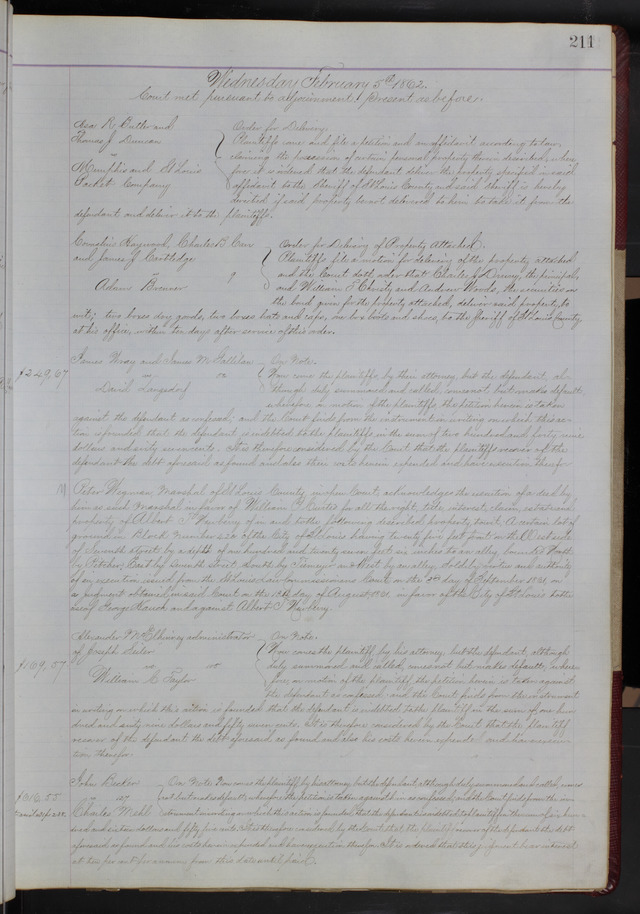 211
Wednesday February 5th 1862.
Court met pursuant to adjournment, present as before.
Asa R. Butler and
Thomas J. Duncan
vs
Memphis and St Louis
Packet Company
Order for Delivery.
Plaintiffs come and file a petition and an affidavit according to law,
claiming the possession of certain personal property therein described, where-
fore it is ordered that the defendant deliver the property specified in said
affidavit to the Sheriff of St Louis County, and said Sheriff is hereby
directed if said property be not delivered to him to take it from the
defendant and deliver it to the plaintiffs.
Cornelius Haywood, Charles
and James J.
Adam Brenner
Order for Delivery of Property Attached.
Plaintiffs file a motion for delivery of the property attached
and the Court doth order that Charles J. the principal
and William F. Christy and Andrew Woods, the securities in
the bond given for the property attached, deliver said property, to
wit; two boxes dry goods, two boxes hats and caps, one box boots and shoes, to the Sheriff of St Louis County,
at his office, within ten days after service of this order.
$249,67
James Wray and James M.
vs
David Langsdorf
On Note.
Now come the plaintiffs by their attorney, but the defendant, al-
though duly summoned and called, comes not but makes default,
wherefore on motion of the plaintiffs, the petition herein is taken
against the defendant as confessed; and the Court finds from the instrument in writing on which this ac-
tion is founded that the defendant is indebted to the plaintiffs in the sum of two hundred and forty nine
dollars and sixty seven cents. It is therefore considered by the Court that the plaintiffs recover of the
defendant the debt aforesaid as found and also their costs herein expended and have execution therefor.
Peter Wegman, Marshal of St Louis County, in open Court, acknowledges the execution of a deed by
him as said Marshal in favor of William for all the right, title, interest, claim, estate and
property of Albert of in and to the following described property, to wit: A certain lot of
ground in Block Number of the City of St Louis having twenty five feet front on the West side
of Seventh street by a depth of one hundred and twenty seven feet six inches to an alley, bounded North
by East by Seventh Street, South by and West by an alley, sold by virtue and authority
of an execution issued from the St Louis Law Commissioners Court on the day of September 1861, on
a judgment obtained in said Court on the day of August, 1861, in favor of the City of St Louis to the
use of George and against Albert
$169,57
Alexander McElhinney administrator
of Joseph Seiler
vs
William C. Taylor
On Note.
Now comes the plaintiff, by his attorney, but the defendant, although
duly summoned and called, comes not but makes default; where-
fore, on motion of the plaintiff the petition herein is taken against
the defendant as confessed and the Court finds from the instrument
in writing on which this action is founded that the defendant is indebted to the plaintiff in the sum of one hun-
dred and sixty nine dollars and fifty seven cents. It is therefore considered by the Court that the plaintiff
recover of the defendant the debt aforesaid as found and also his costs herein expended and have execu-
tion therefor.
$616.55
John Becker
vs
Charles Mehl
On Note. Now comes the plaintiff, by his attorney, but the defendant, although duly summoned and called, comes
not but makes default, wherefore the petition is taken against him as confessed; and the Court finds from the in-
strument in writing on which this action is founded, that the defendant is indebted to plaintiff in the sum of six hun-
dred and sixteen dollars and fifty five cents. It is therefore considered by the Court, that the plaintiff recover of the defendant the debt
aforesaid as found and his costs herein expended and have execution therefor. It is ordered that this judgment bear interest
at ten per cent per annum from this date until paid.